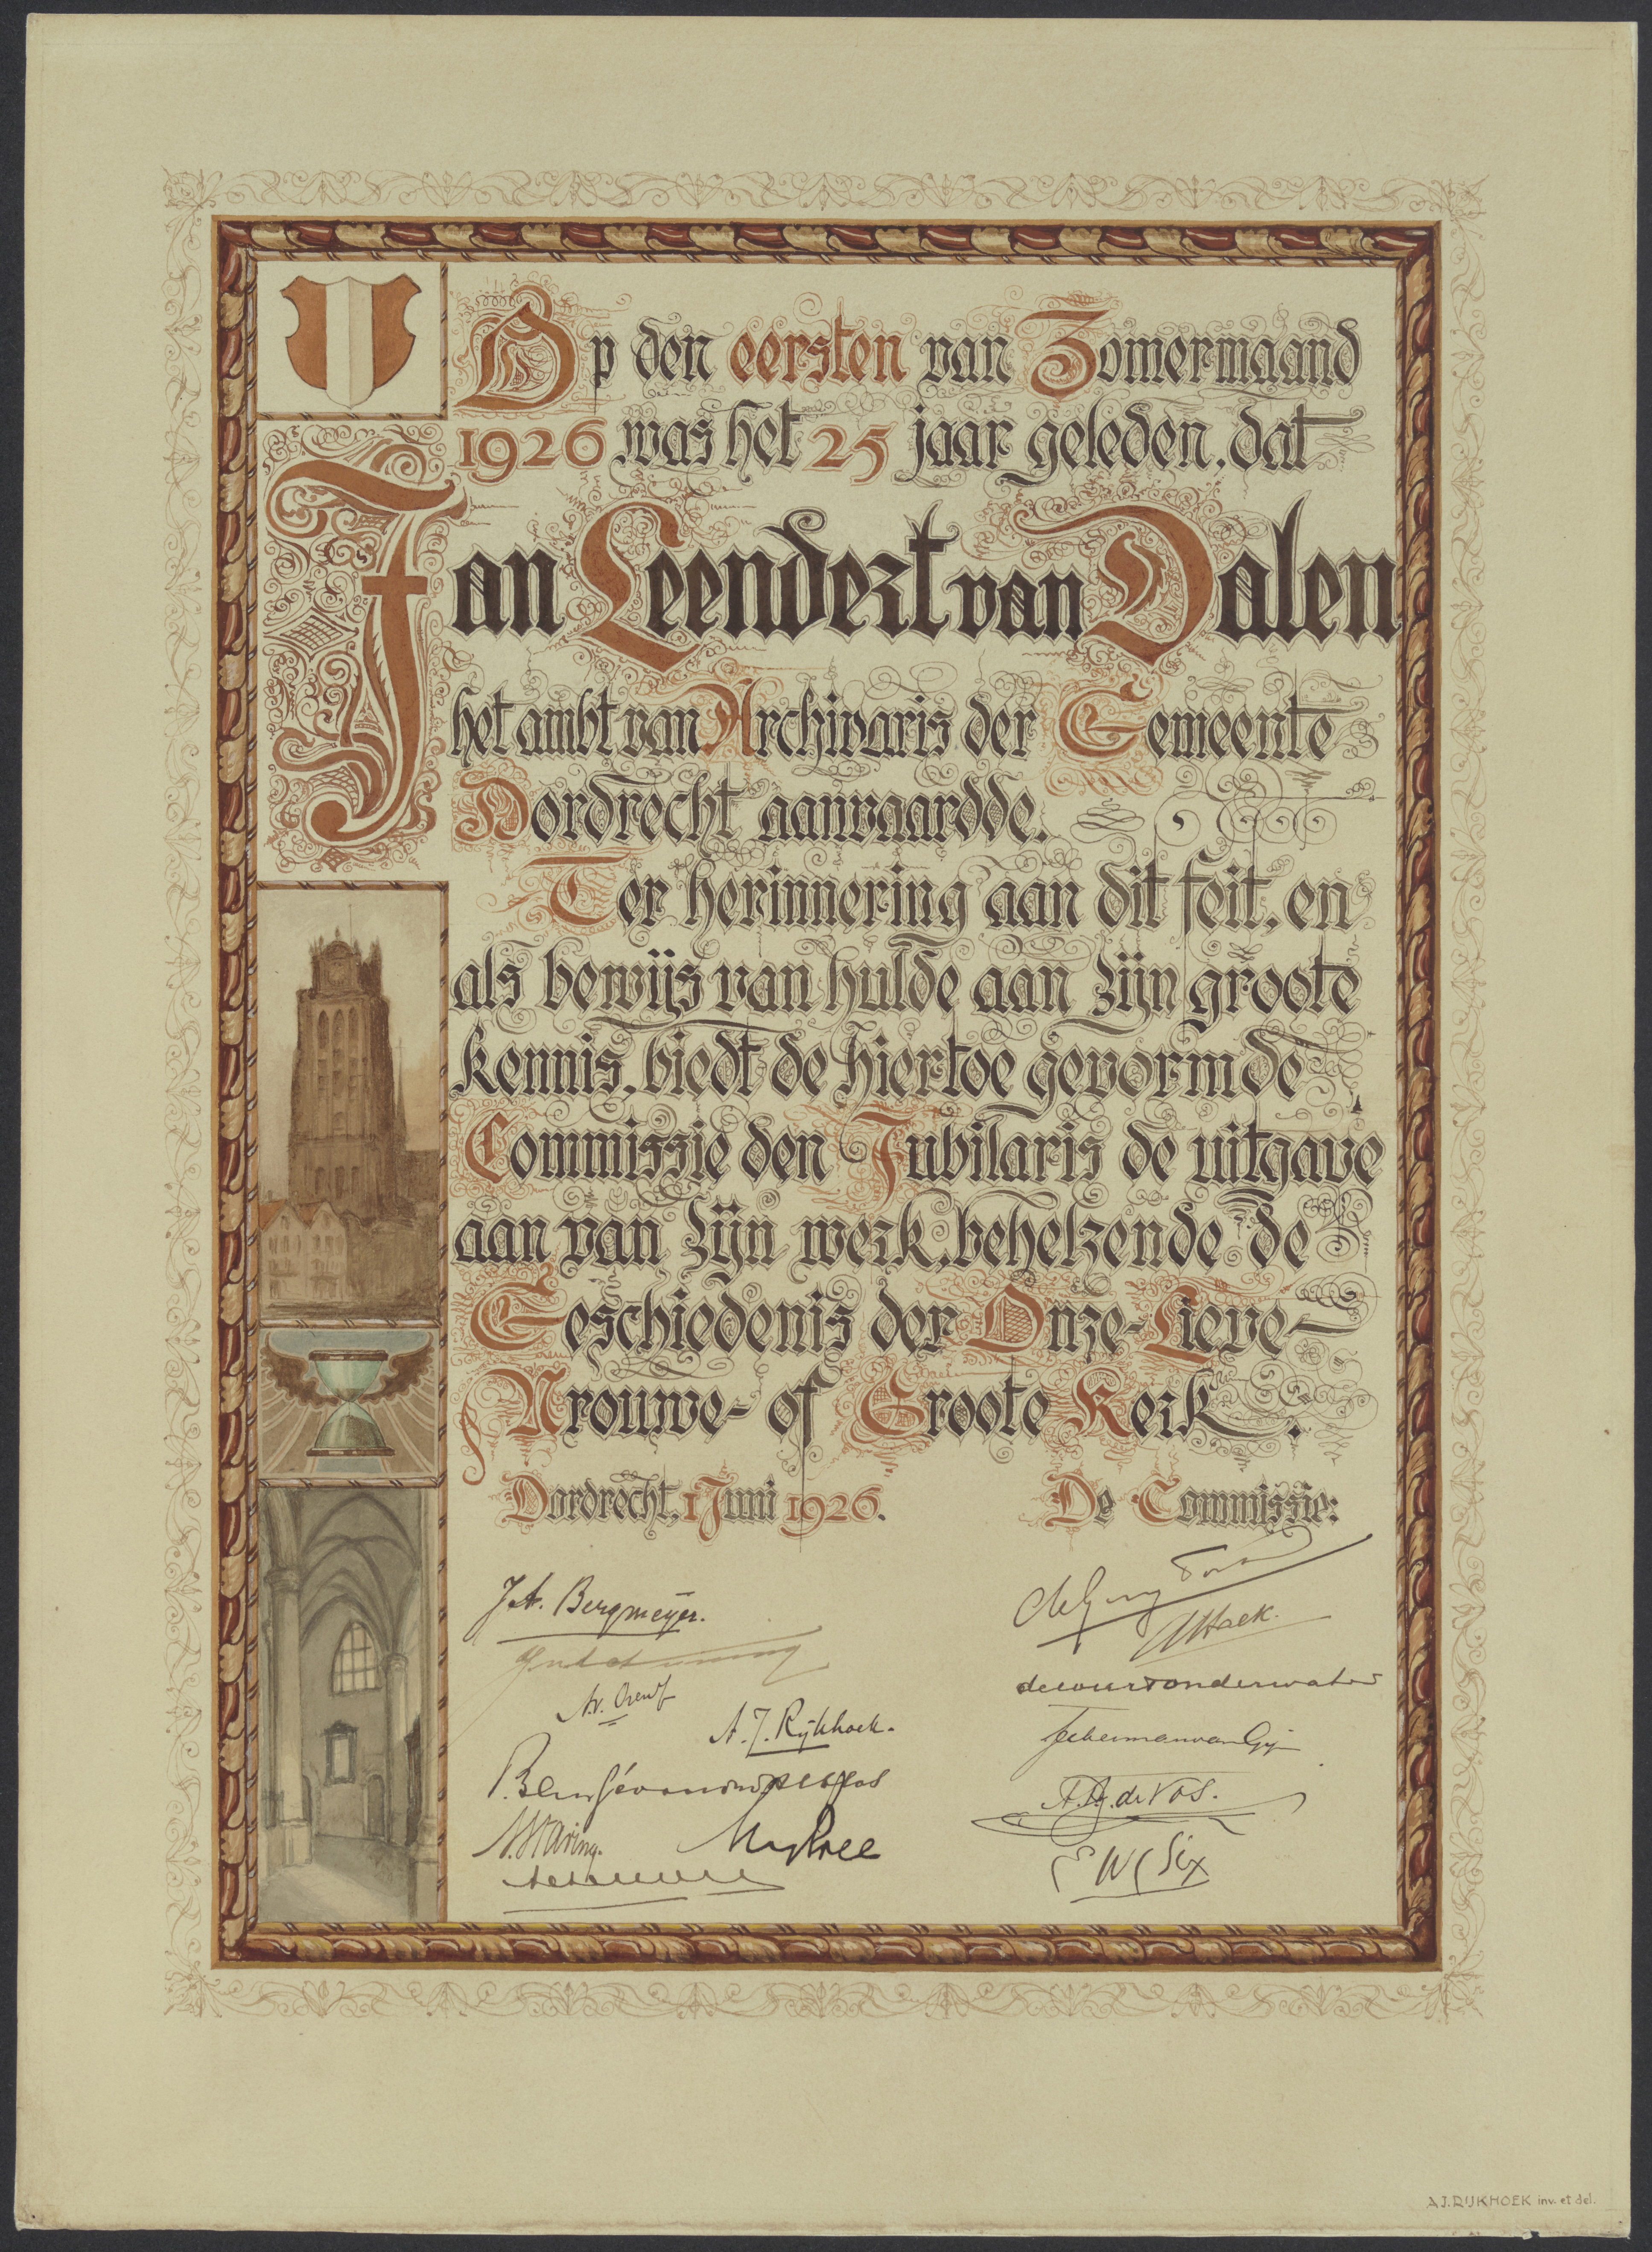 Op den eersten van Zomermaand
1926 was het 25 jaar geleden, dat
Jan Leendert van Dalen
het ambt van Archivaris der Gemeente
Dordrecht aanvaardde.
Ter herinnering aan dit feit, en
als bewijs van hulde aan zijn groote
kennis, biedt de hiertoe gevormde
Commissie den Jubilaris de uitgave
aan van zijn werk, behelzende de
Geschiedenis der Onze-Lieve-
Vrouwe- of Groote Kerk.
Dordrecht, 1 Juni 1926.
De Commissie:
J.A. Bergmeyer.
A.J. Rijkhoek.
A.A. de Vos.
N. Staring.
Six
A.J. RIJKHOEK inv. et del.